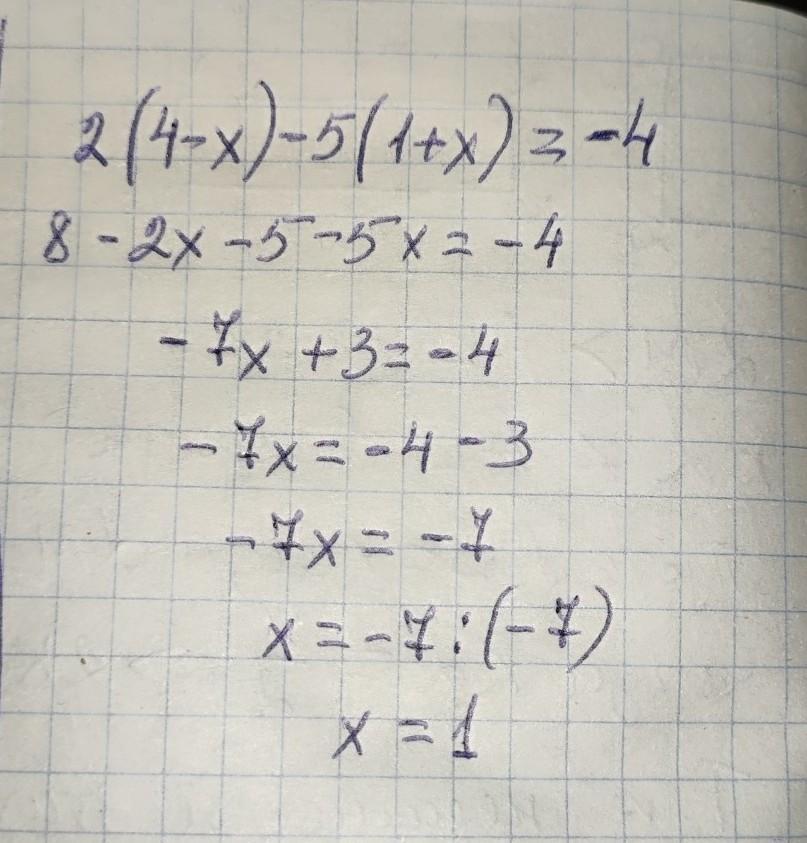 2(4-x)-5(1+x)=-4
8-2x-5-5x=-4
-7x+3=-4
-7x=-4-3
-7x=-7
x=-7:(-7)
x=1